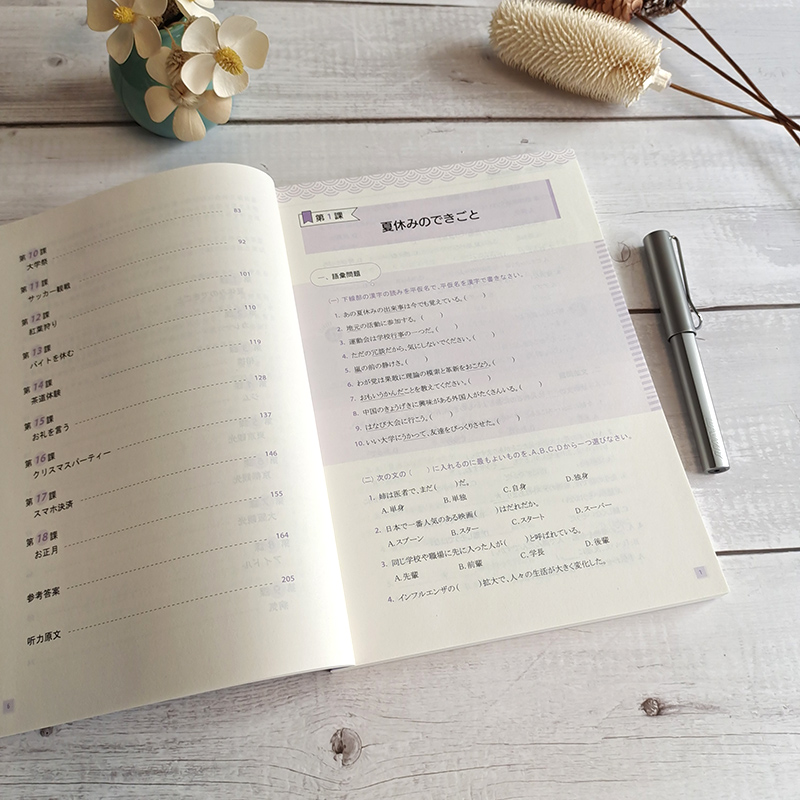 第10課 83
大学祭
第11課 92
サッカー観戦
第12課 101
紅葉狩り
第13課 110
バイトを休む
第14課 119
茶道体験
第15課 128
お礼を言う
第16課 137
クリスマスパーティー
第17課 146
スマホ決済
第18課 155
お正月
参考答案 164
听力原文 205
第1課
夏休みのできごと
一、語彙問題
(一) 下線部の漢字の読みを平仮名で、平仮名を漢字で書きなさい。
1. あの夏休みの出来事は今でも覚えている。( )
2. 地元の活動に参加する。( )
3. 運動会は学校行事の一つだ。( )
4. ただの冗談だから、気にしないでください。( )
5. 嵐の前の静けさ。( )
6. わが党は果敢に理論の模索と革新をおこなう。( )
7. おもいうかんだことを教えてください。( )
8. 中国のきょうげきに興味がある外国人がたくさんいる。( )
9. はなび大会に行こう。( )
10. いい大学にうかって、友達をびっくりさせた。( )
(二) 次の文の( )に入れるのに最もよいものを、A、B、C、Dから一つ選びなさい。
1. 姉は医者で、まだ( )だ。
A. 単身 B. 単独 C. 自身 D. 独身
2. 日本で一番人気のある映画( )はだれだか。
A. スプーン B. スター C. スタート D. スーパー
3. 同じ学校や職場に先に入った人が( )と呼ばれている。
A. 先輩 B. 前輩 C. 学長 D. 後輩
4. インフルエンザの( )拡大で、人々の生活が大きく変化した。
1